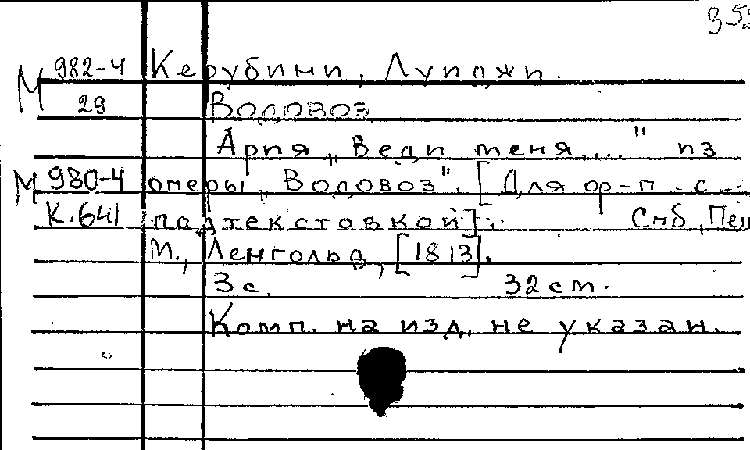 М 982-4 Керубини, Луиджи.
29 Водовоз
Ария „Веди меня...." из
М 980-4 оперы „Водовоз". [Для ф-п. с
К.641 подтекстовкой]. Спб, Пец
М., Ленгольд, [1813].
3 с. 32 см.
Комп. на изд. не указан.